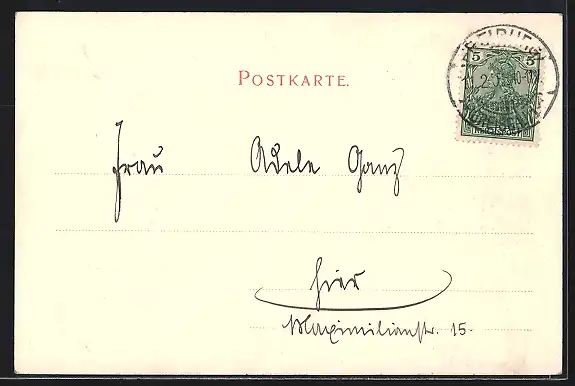 POSTKARTE.
5 5
Frau Adele Ganz
hier
Maximilianstr. 15.